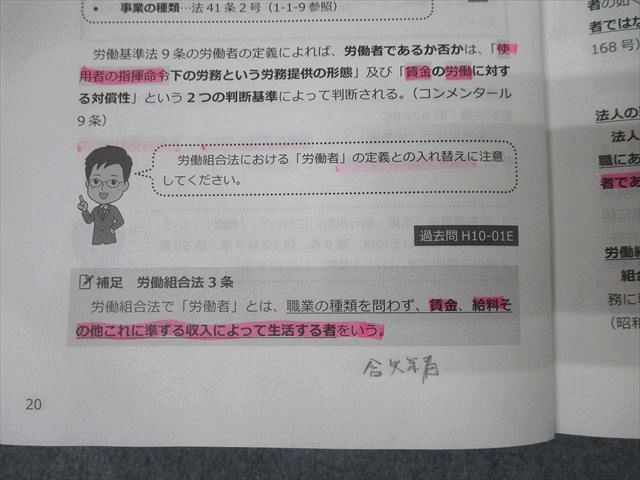 • 事業の種類…法 41 条 2 号（1-1-9 参照）
労働基準法 9 条の労働者の定義によれば、労働者であるか否かは、「使
用者の指揮命令下の労務という労務提供の形態」及び「賃金の労働に対す
る対償性」という 2 つの判断基準によって判断される。（コンメンタール
9 条）
労働組合法における「労働者」の定義との入れ替えに注意
してください。
過去問 H10-01E
補足　労働組合法 3 条
労働組合法で「労働者」とは、職業の種類を問わず、賃金、給料そ
の他これに準ずる収入によって生活する者をいう。
20
者の如
者ではな
168 号）
法人の
法人
職にあ
者であ
労働組
組合
務に
（昭和